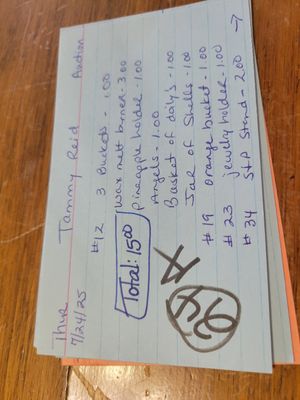 Thur Tammy Reid Auction
7/24/25
#12 3 Buckets - 1.00
Wax melt burner - 3.00
Pineapple holder - 1.00
Angels - 1.00
Basket of daily's - 1.00
Jar of Shells - 1.00
#19 orange bucket - 1.00
#23 jewelry holder - 1.00
#34 S+P Stand - 2.00 →
Total: 1500